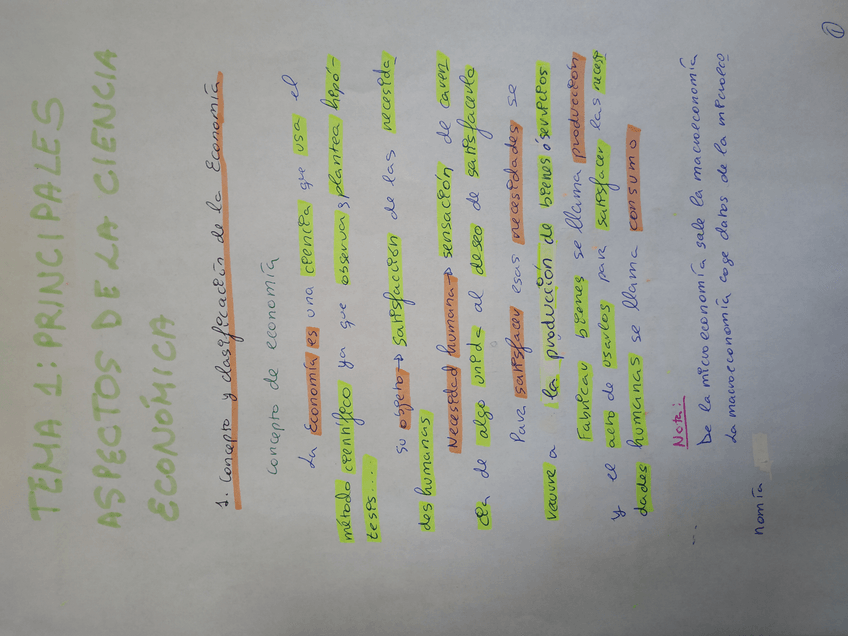 TEMA 1: PRINCIPALES
ASPECTOS DE LA CIENCIA
ECONÓMICA
1. Concepto y clasificación de la Economía
Concepto de economía
La Economía es una ciencia que usa el
método científico ya que observa, plantea hipó-
tesis...
Su objeto → satisfacción de las necesida-
des humanas
Necesidad humana → sensación de caren-
cia de algo unida al deseo de satisfacerla
Para satisfacer esas necesidades se
recurre a la producción de bienes ó servicios
Fabricar bienes se llama producción
y el acto de usarlos para satisfacer las necesi
dades humanas se llama consumo
Nota:
De la microeconomía sale la macroeconomía
La macroeconomía coge datos de la microeco
nomía
1